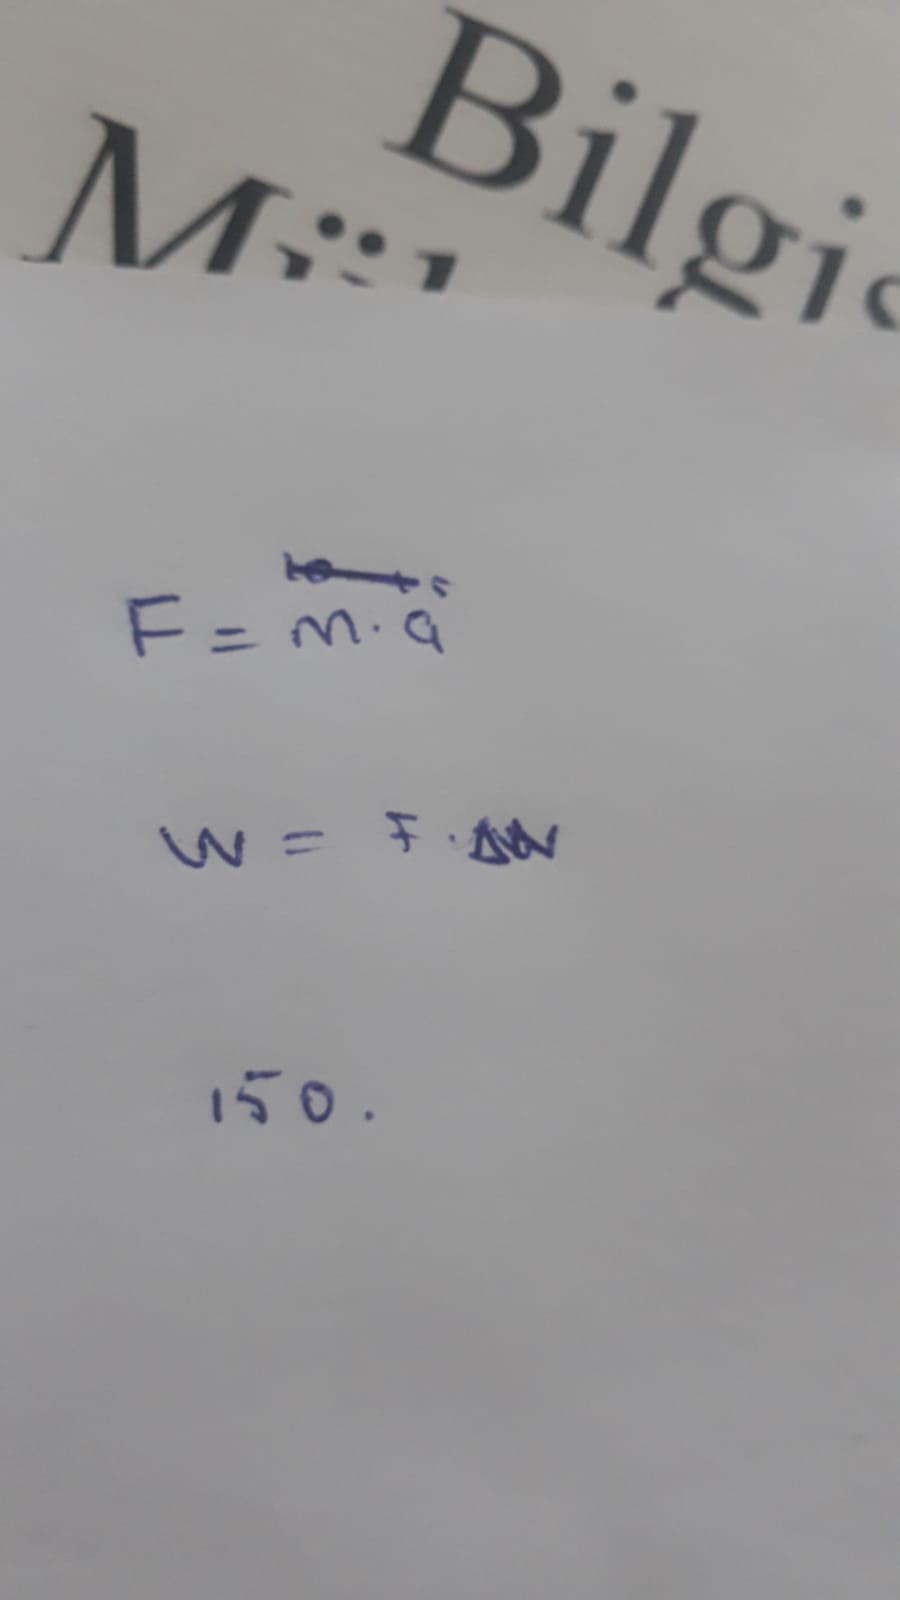 Bilgi
F = m. a
W = F.
150.